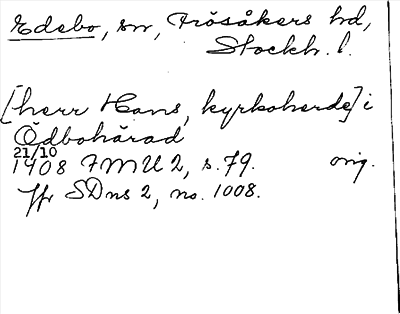 Edebo, sn, Frösåkers hd,
Stockh. l.
[herr Hans, kyrkoherde] i
Ödbohärad
21/10
1408 FMU 2, s. 79. orig.
Jfr SDns 2, no. 1008.